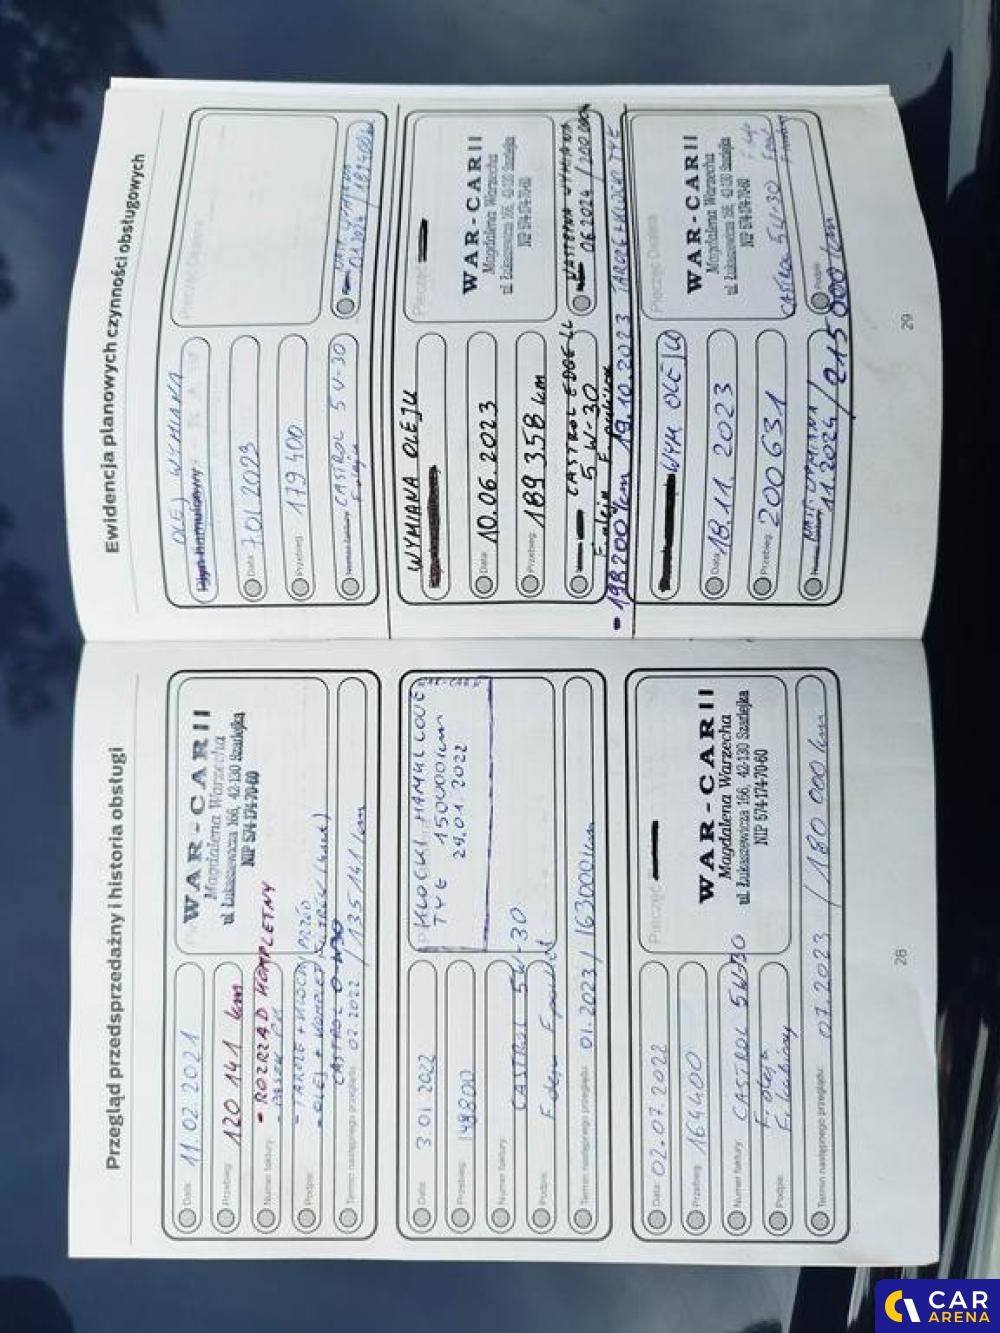 Przegląd przedsprzedażny i historia obsługi
Data: 11.02.2021
Przebieg: 120 141 km
Numer faktury: - ROZRZĄD KOMPLETNY
Podpis:
Termin następnego przeglądu: 02.2022 / 135 141 km
CASTROL
WAR-CAR II
Magdalena Warzecha
ul. Łukaszewicza 166, 42-130 Szarlejka
NIP 574-174-70-60
Data: 3 01.2022
Przebieg: 149800
Numer faktury: CASTROL 5W-30
Podpis:
Termin następnego przeglądu: 01.2023 / 163000 km
KLOCKI HAMULCOWE
TYŁ 150000 km
29.01.2022
WAR-CAR II
Data: 02.07.2022
Przebieg: 164400
Numer faktury: CASTROL 5W-30
F. oleju
Podpis: F. kabiny
Termin następnego przeglądu: 07.2023 / 180 000 km
Pieczęć
WAR-CAR II
Magdalena Warzecha
ul. Łukaszewicza 166, 42-130 Szarlejka
NIP 574-174-70-60
28
Ewidencja planowych czynności obsługowych
OLEJ WYMIANA
Płyn hamulcowy
Data: 7.01.2023
Przebieg: 179400
CASTROL 5W-30
F. oleju
Pieczęć Dealera
01.2024 / 189400 km
WYMIANA OLEJU
Data: 10.06.2023
Przebieg: 189 358 km
CASTROL EDGE LL
5W-30
Pieczęć
WAR-CAR II
Magdalena Warzecha
ul. Łukaszewicza 166, 42-130 Szarlejka
NIP 574-174-70-60
NASTĘPNA WYMIANA
06.2024 / 200 000 km
- 198200 km 19.10.2023 TARCZE + KLOCKI TYŁ
WYM OLEJU
Data: 18.11.2023
Przebieg: 200631
11.2024 / 215 000 km
Pieczęć Dealera
WAR-CAR II
Magdalena Warzecha
ul. Łukaszewicza 166, 42-130 Szarlejka
NIP 574-174-70-60
CASTROL 5W-30
Podpis:
29
CAR
ARENA